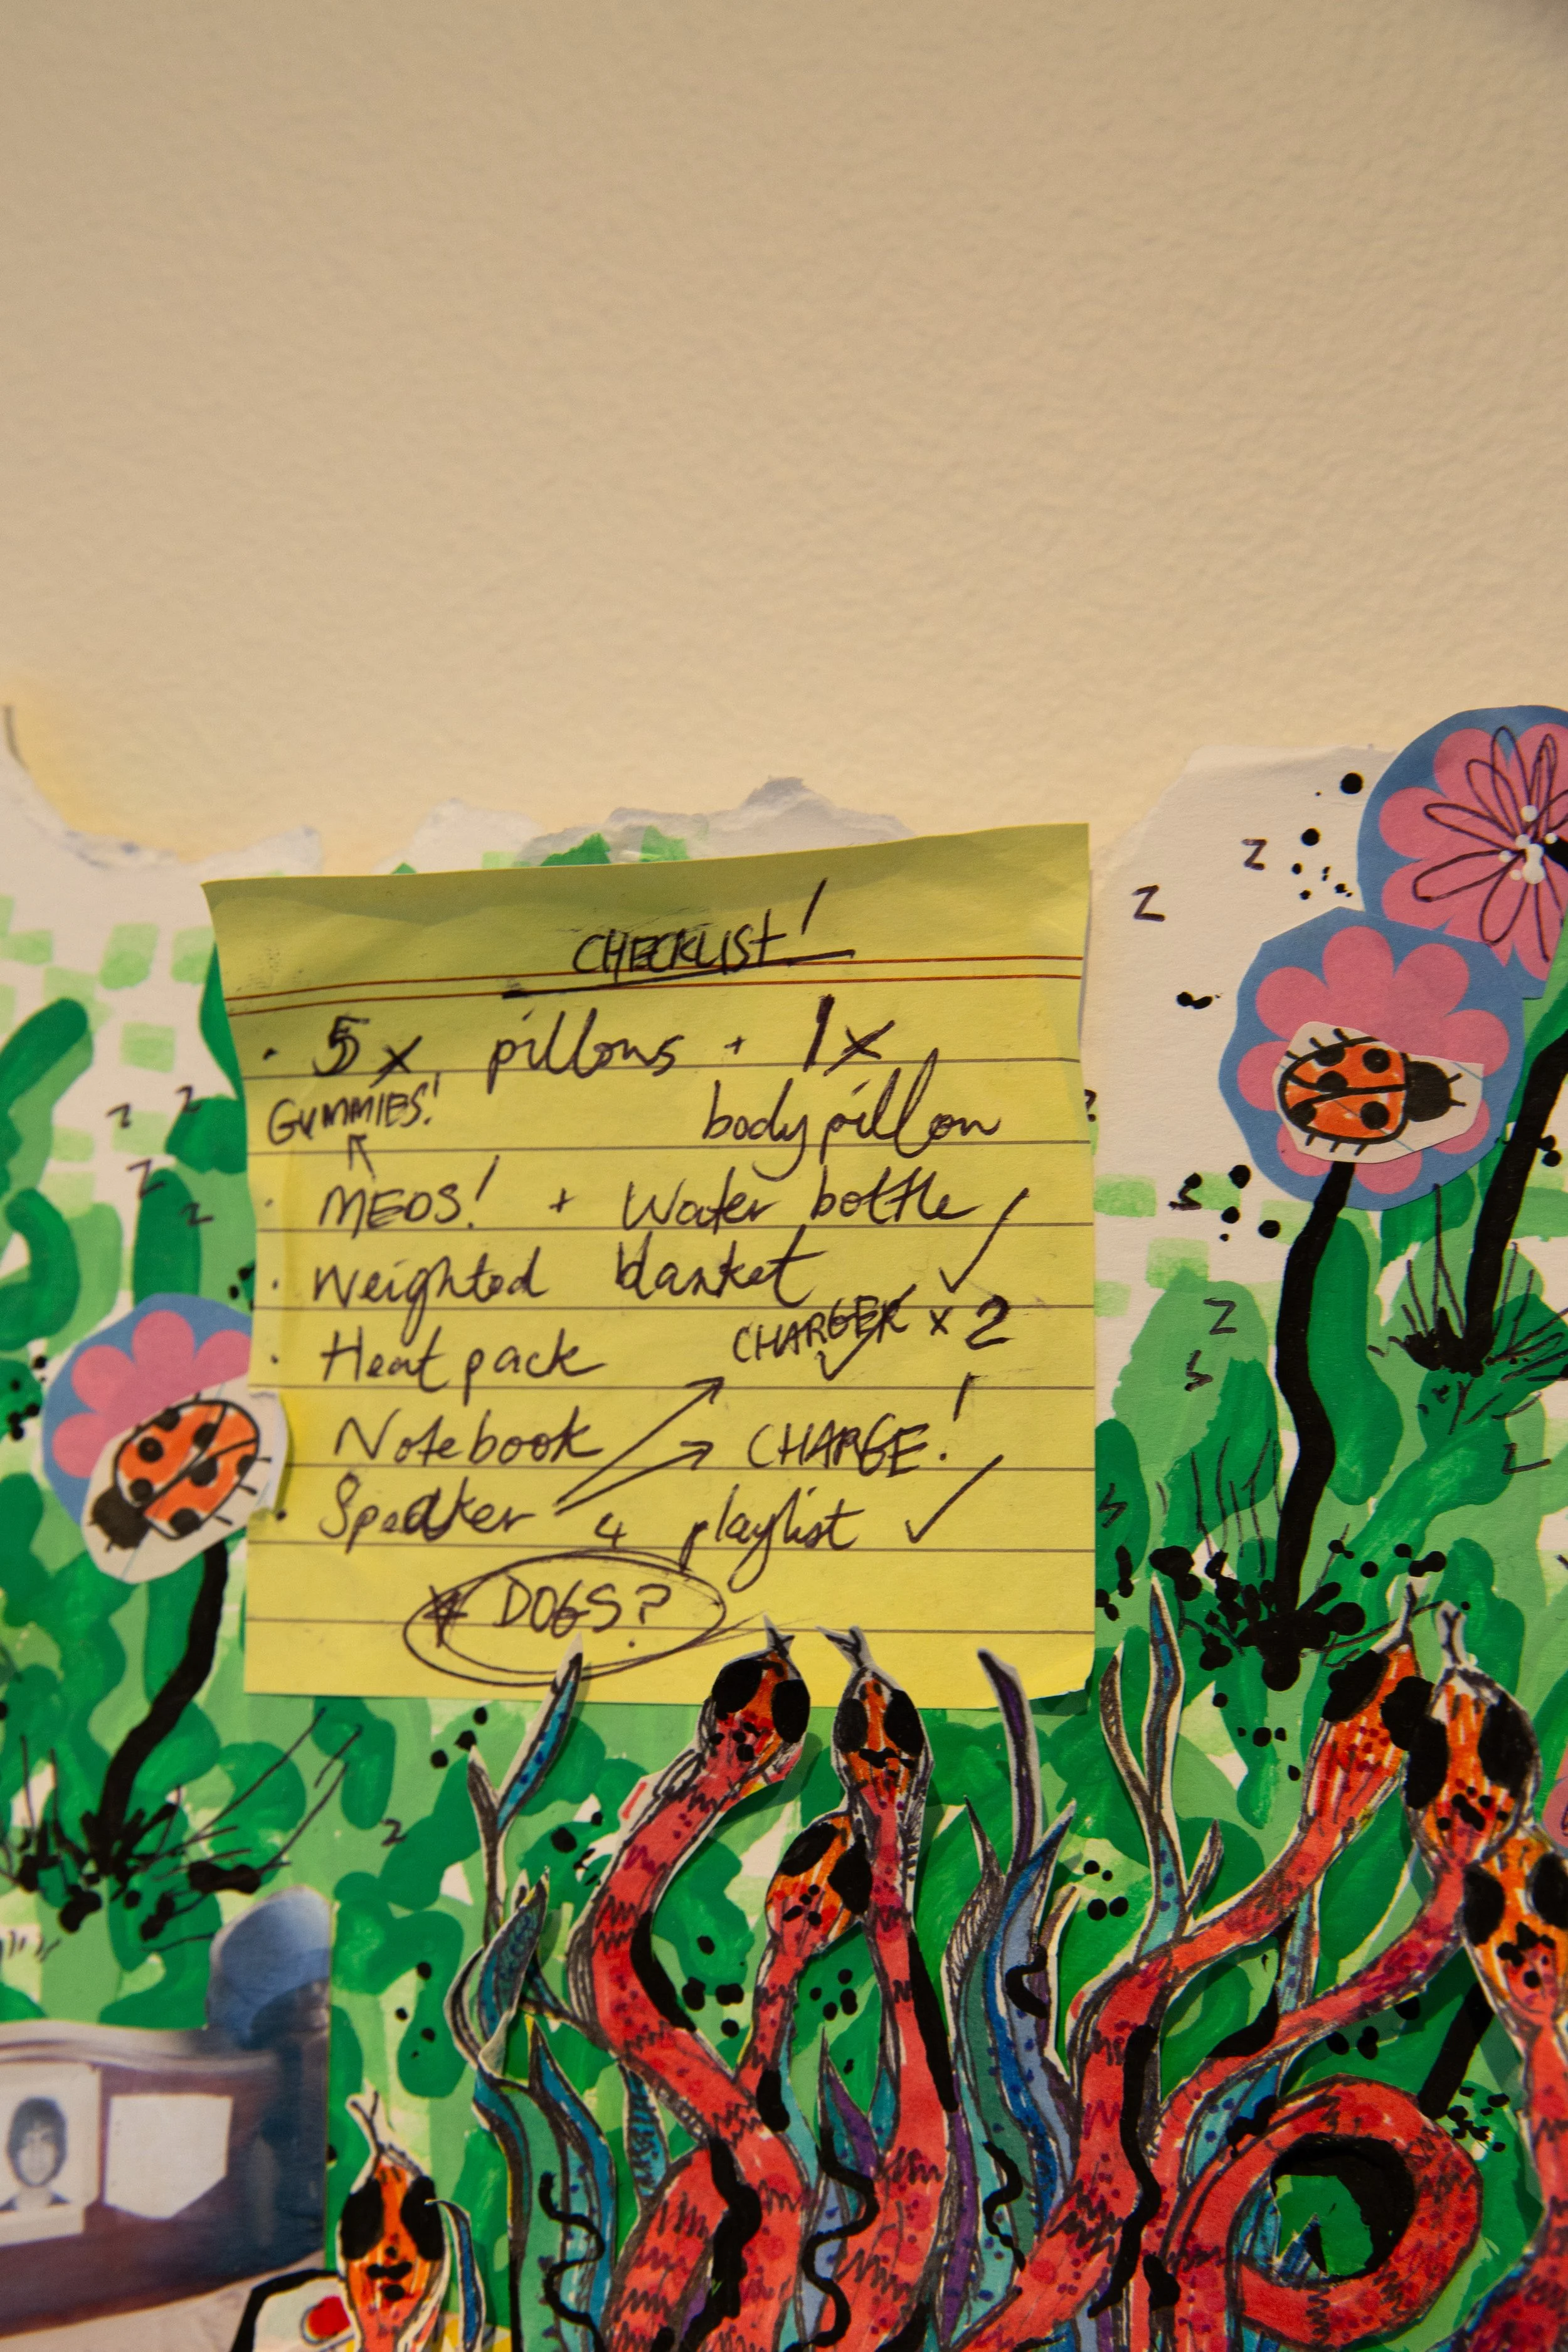 CHECKLIST!
· 5x pillows + 1x
body pillow
GUMMIES!
· MEDS! + Water bottle ✓
· Weighted blanket
CHARGER x 2
· Heat pack
Notebook
CHARGE!
· Speaker + playlist ✓
* DOGS?
z
z
z
z
z
z
z
z
z